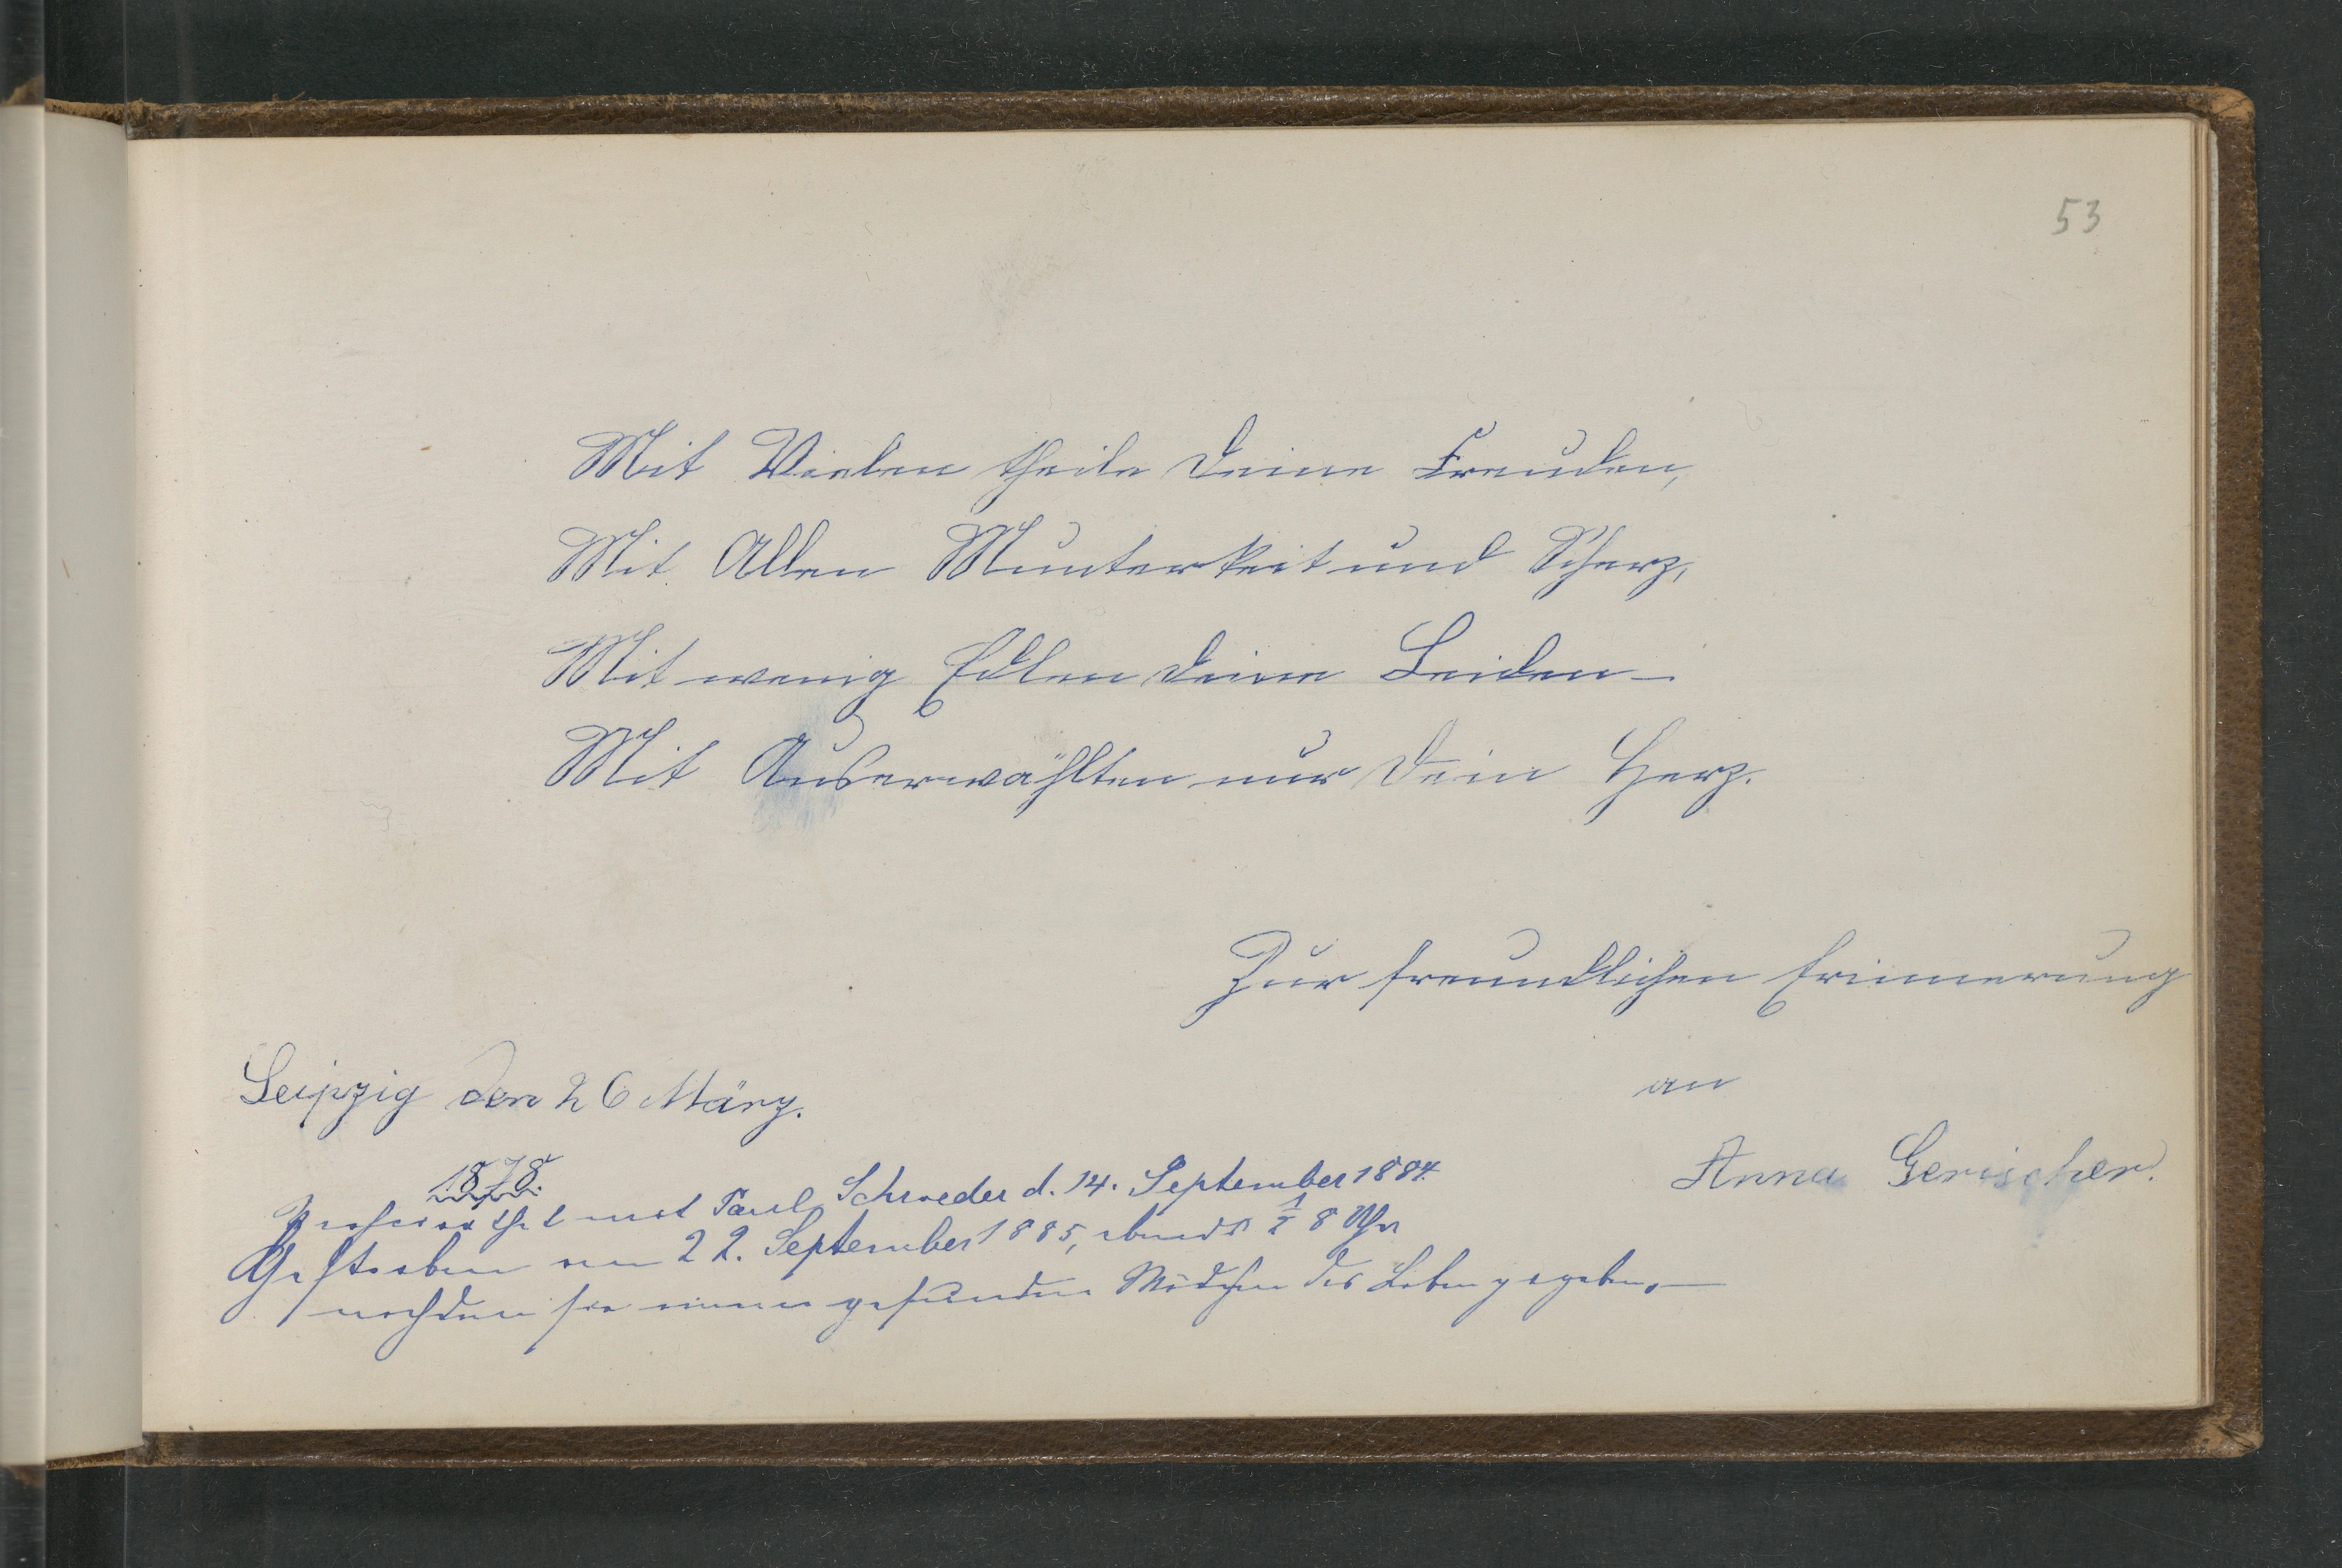 53
Mit Vielen theile Deine Freuden,
Mit Allen Munterkeit und Scherz,
Mit wenig Edlen Deine Leiden –
Mit Auserwählten nur Dein Herz.
Zur freundlichen Erinnerung
an
Anna Gerischer.
Leipzig den 26 März.
1878.
Verheirathet mit Paul Schroeder d. 14. September 1884.
Gestorben am 22. September 1885, abends ½ 8 Uhr
nachdem sie einem gesunden Mädchen das Leben gegeben. –